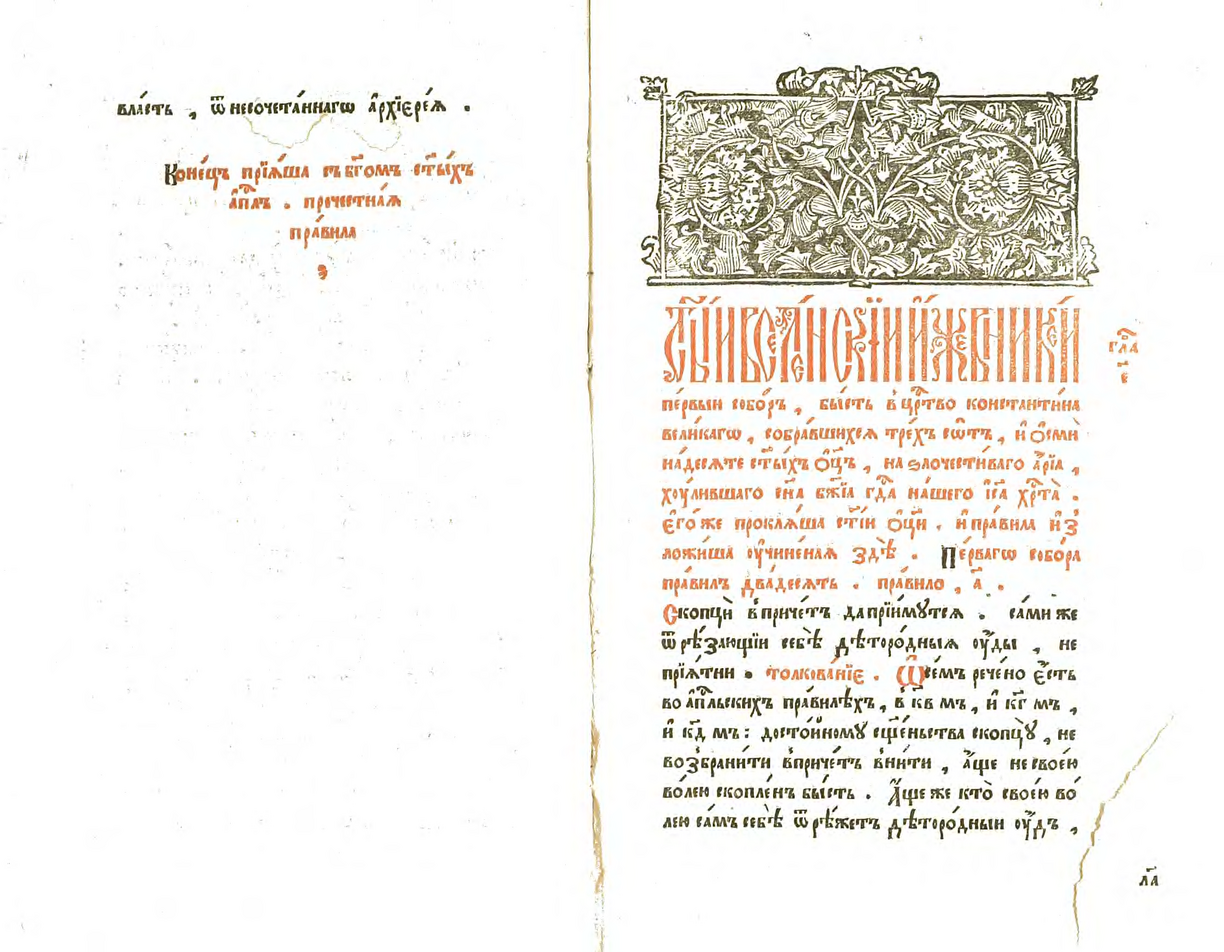 вла́сть , ѿ несочета́ннагѡ а҆рхїере́ѧ .
Коне́цъ прїѧ́ша съ бг҃омъ ст҃ы́хъ
а҆пⷭ҇лъ . пречестна́ѧ
пра́вила
ст҃ы́й вселе́нскїй и҆́же в̾нике́и
гла̑
є҃
пе́рвыи собо́ръ , бы́сть в̾ црⷭ҇тво константи́на
вели́кагѡ , собра́вшихсѧ тре́хъ сѡ́тъ , и҆ ѻ҆смѝ
на́десѧте ст҃ы́хъ ѻ҆ц҃ъ , на ѕлочести́ваго а҆́рїа ,
хꙋ́лившаго сн҃а бж҃їа гдⷭ҇а на́шего і҆с҃а хрⷭ҇та̀ .
є҆го́ же проклѧ́ша ст҃і́и ѻ҆ц҃ы̀ . и҆ пра́вила и҆з̾
ложи́ша ᲂу҆чине́наѧ здѣ̀ . Пе́рвагѡ собо́ра
пра́вилъ два́десѧть . пра́вило , а҃ .
Скопцы̀ в̾ при́четъ да прїи́мꙋтсѧ . са́ми же
ѿрѣ́зающїи себѣ̀ дѣторо́дныѧ ᲂу҆́ды , не
прїѧ́тни . толкова́нїе . Ѡ҆ се́мъ рече́но є҆́сть
во а҆пⷭ҇льскихъ пра́вилѣхъ , в̾ к҃в мъ , и҆ к҃г мъ ,
и҆ к҃д мъ : досто́йному сщ҃е́ньства скопцꙋ̀ , не
возбрани́ти в̾ при́четъ вни́ти , а҆́ще не свое́ю
во́лею скопле́нъ бы́сть . А҆́ще же кто̀ свое́ю во́
лею са́мъ себѣ̀ ѿрѣ́жетъ дѣторо́дныи ᲂу҆́дъ ,
л҃а